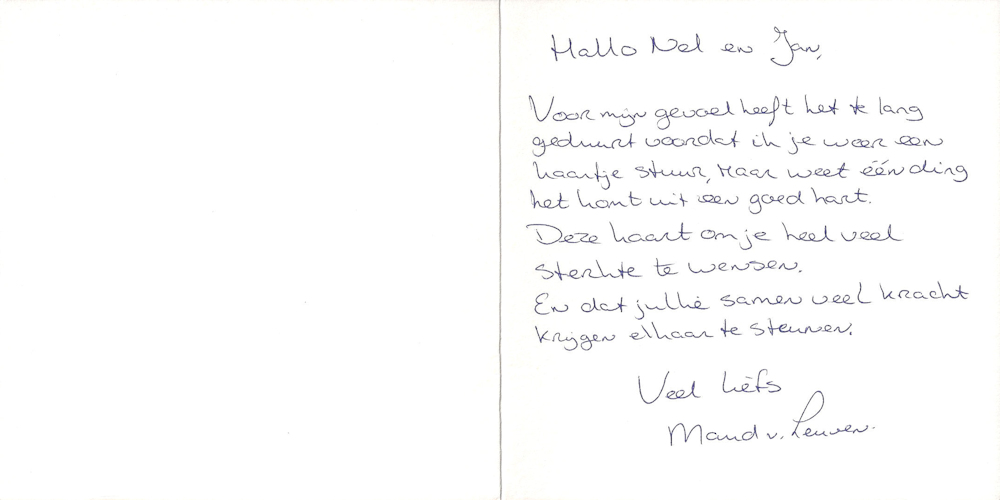 Hallo Nel en Jan,
Voor mijn gevoel heeft het te lang
geduurt voordat ik je weer een
kaartje stuur, Maar weet één ding
het komt uit een goed hart.
Deze kaart om je heel veel
sterkte te wensen.
En dat jullie samen veel kracht
krijgen elkaar te steunen.
Veel liefs
Maud v. Leuven.